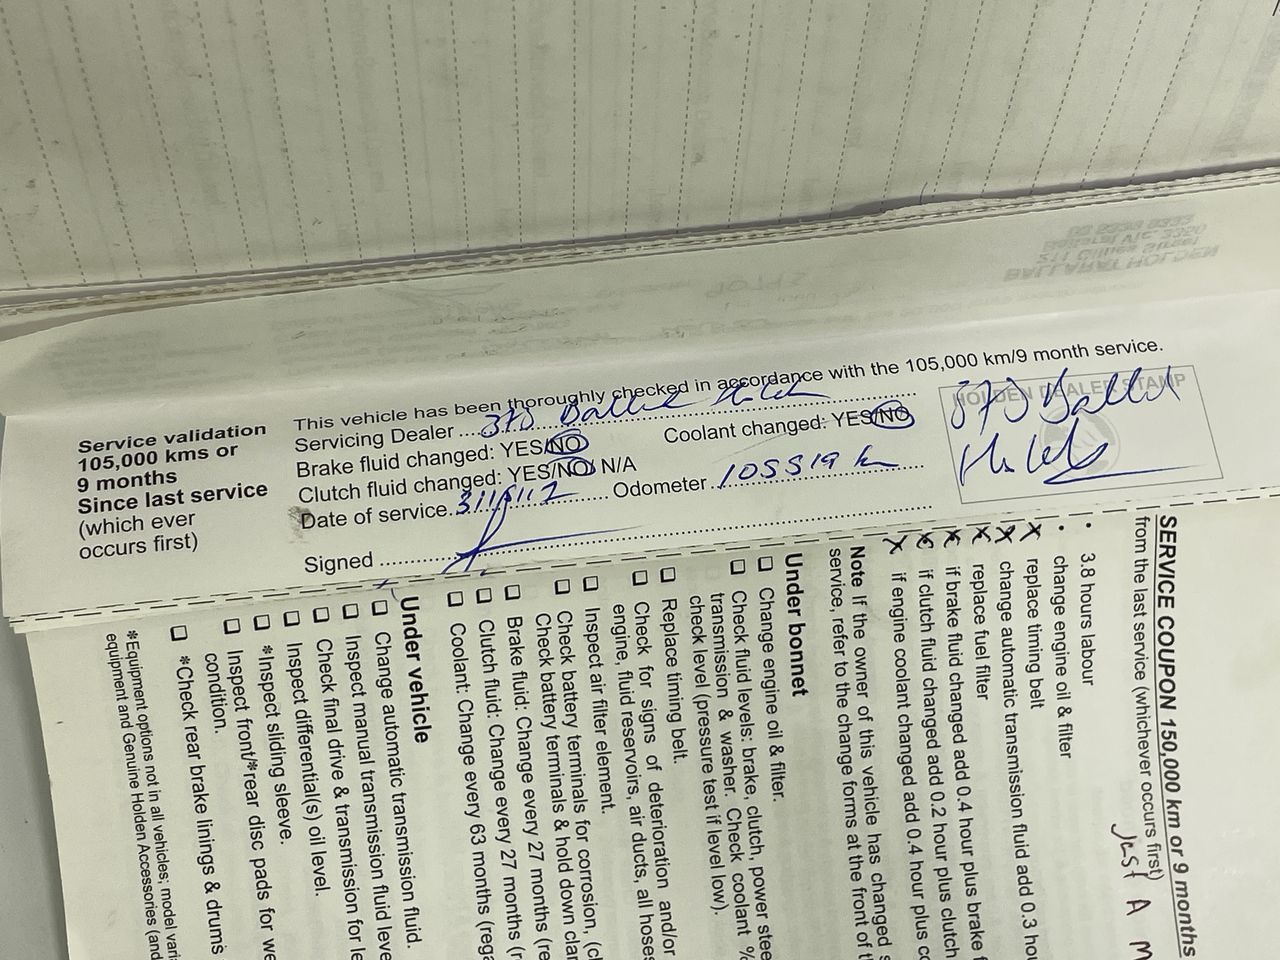 Service validation
105,000 kms or
9 months
Since last service
(which ever
occurs first)
This vehicle has been thoroughly checked in accordance with the 105,000 km/9 month service.
Servicing Dealer
Brake fluid changed: YES/NO
Coolant changed: YES/NO
Clutch fluid changed: YES/NO/ N/A
Date of service
Odometer 105519 km
Signed
HOLDEN DEALER STAMP
BALLARAT HOLDEN
SERVICE COUPON 150,000 km or 9 months
from the last service (whichever occurs first)
Just A
• 3.8 hours labour
• change engine oil & filter
X replace timing belt
X change automatic transmission fluid add 0.3 hou
X replace fuel filter
X if brake fluid changed add 0.4 hour plus brake f
X if clutch fluid changed add 0.2 hour plus clutch
X if engine coolant changed add 0.4 hour plus co
Note If the owner of this vehicle has changed s
service, refer to the change forms at the front of th
Under bonnet
Change engine oil & filter.
Check fluid levels: brake, clutch, power stee
transmission & washer. Check coolant %
check level (pressure test if level low).
Replace timing belt.
Check for signs of deterioration and/or
engine, fluid reservoirs, air ducts, all hoses
Inspect air filter element.
Check battery terminals for corrosion, (cl
Check battery terminals & hold down clar
Brake fluid: Change every 27 months (re
Clutch fluid: Change every 27 months (r
Coolant: Change every 63 months (rega
Under vehicle
Change automatic transmission fluid.
Inspect manual transmission fluid leve
Check final drive & transmission for le
Inspect differential(s) oil level.
*Inspect sliding sleeve.
Inspect front/*rear disc pads for we
condition.
*Check rear brake linings & drums
*Equipment options not in all vehicles; model vari
equipment and Genuine Holden Accessories (and